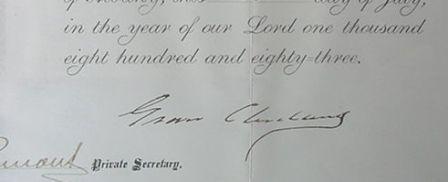 of Albany, this day of July,
in the year of our Lord one thousand
eight hundred and eighty=three.
Grover Cleveland
Private Secretary.